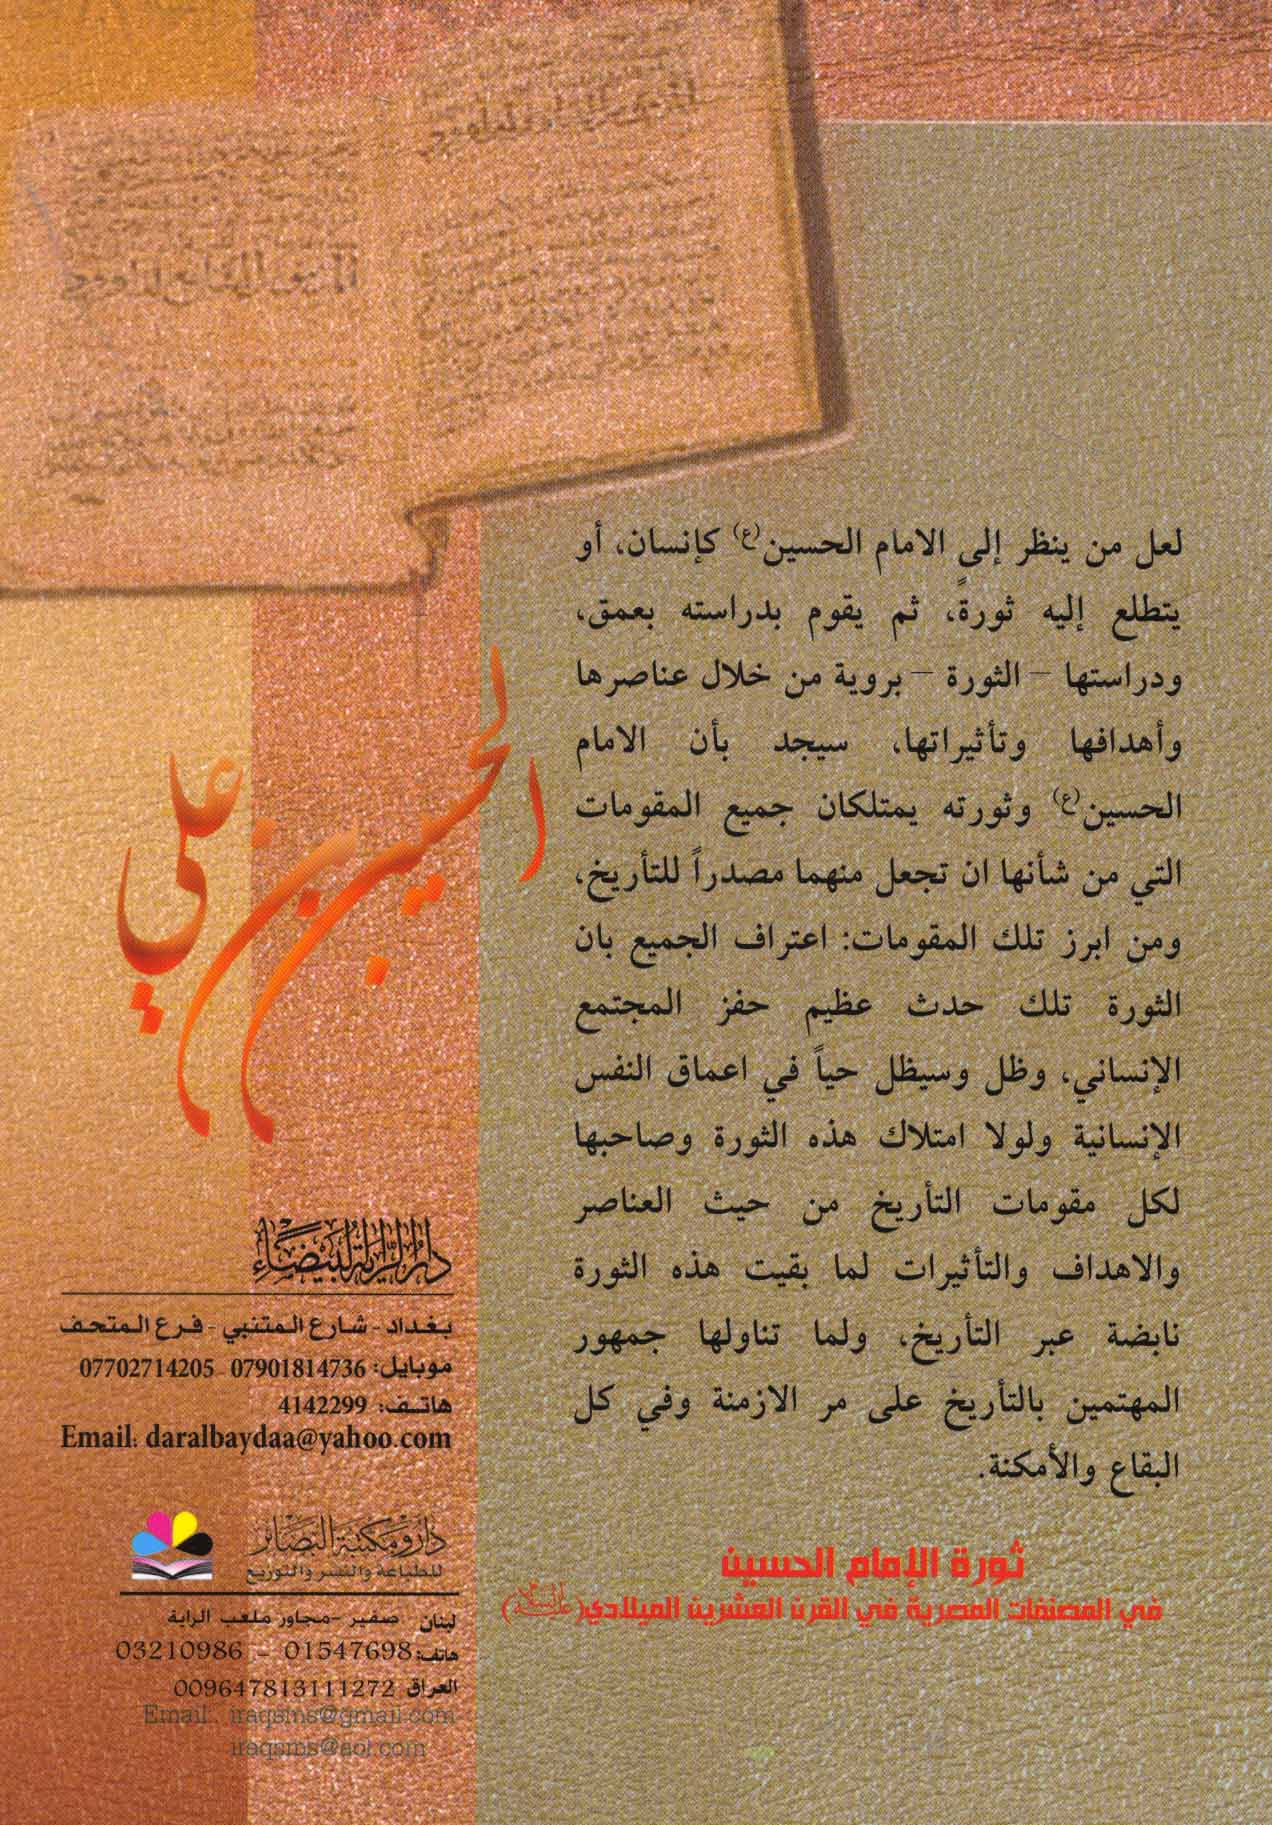 لعل من ينظر إلى الامام الحسين(ع) كإنسان، أو
يتطلع إليه ثورةً، ثم يقوم بدراسته بعمق،
ودراستها – الثورة – بروية من خلال عناصرها
وأهدافها وتأثيراتها، سيجد بأن الامام
الحسين(ع) وثورته يمتلكان جميع المقومات
التي من شأنها ان تجعل منهما مصدراً للتأريخ،
ومن ابرز تلك المقومات: اعتراف الجميع بان
الثورة تلك حدث عظيم حفز المجتمع
الإنساني، وظل وسيظل حياً في اعماق النفس
الإنسانية ولولا امتلاك هذه الثورة وصاحبها
لكل مقومات التأريخ من حيث العناصر
والاهداف والتأثيرات لما بقيت هذه الثورة
نابضة عبر التأريخ، ولما تناولها جمهور
المهتمين بالتأريخ على مر الازمنة وفي كل
البقاع والأمكنة.
ثورة الإمام الحسين
في المصنفات المصرية في القرن العشرين الميلادي(عليه السلام)
الحسين بن علي
دار الراية البيضاء
بغداد - شارع المتنبي - فرع المتحف
موبايل: 07901814736 07702714205
هاتف: 4142299
Email: daralbaydaa@yahoo.com
دار ومكتبة البصائر
للطباعة والنشر والتوزيع
لبنان صفير -مجاور ملعب الراية
هاتف: 01547698 - 03210986
العراق 009647813111272
Email: iraqsms@gmail.com
iraqsms@aol.com